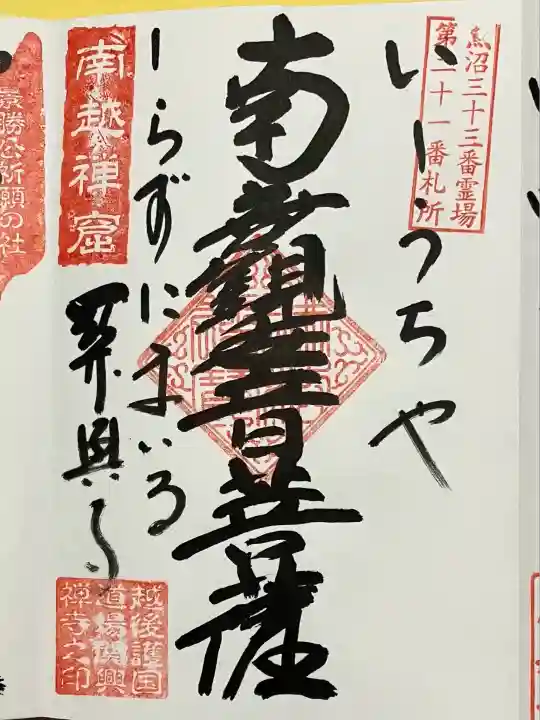 魚沼三十三番霊場
第二十一番札所
いしうちや
南無觀世音菩薩
しらずにまいる
南越禅窟
関興寺
越後護国
道場関興
禅寺之印
景勝公祈願の社